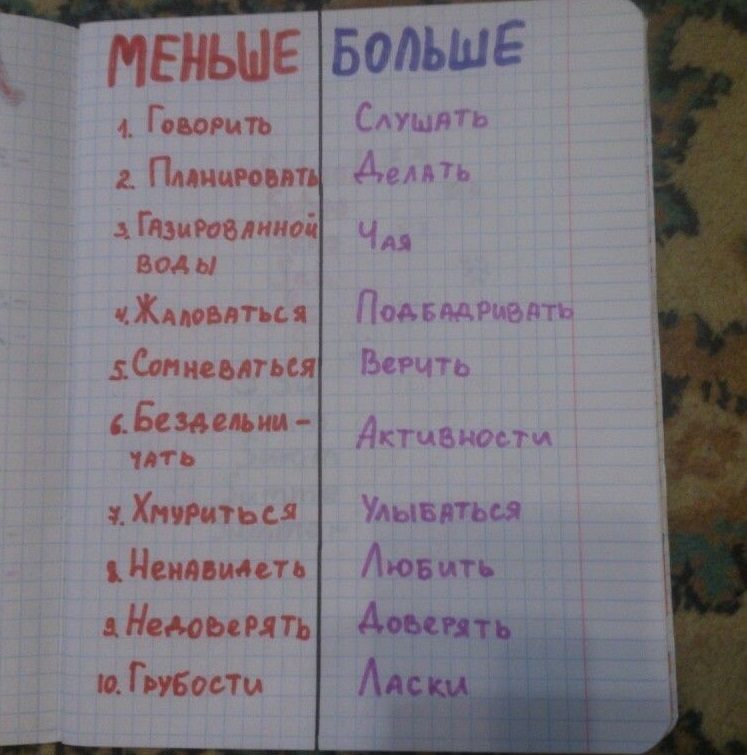 МЕНЬШЕ БОЛЬШЕ
1. Говорить Слушать
2. Планировать Делать
3. Газированной Чая
воды
4. Жаловаться Подбадривать
5. Сомневаться Верить
6. Бездельни- Активности
чать
7. Хмуриться Улыбаться
8. Ненавидеть Любить
9. Недоверять Доверять
10. Грубости Ласки